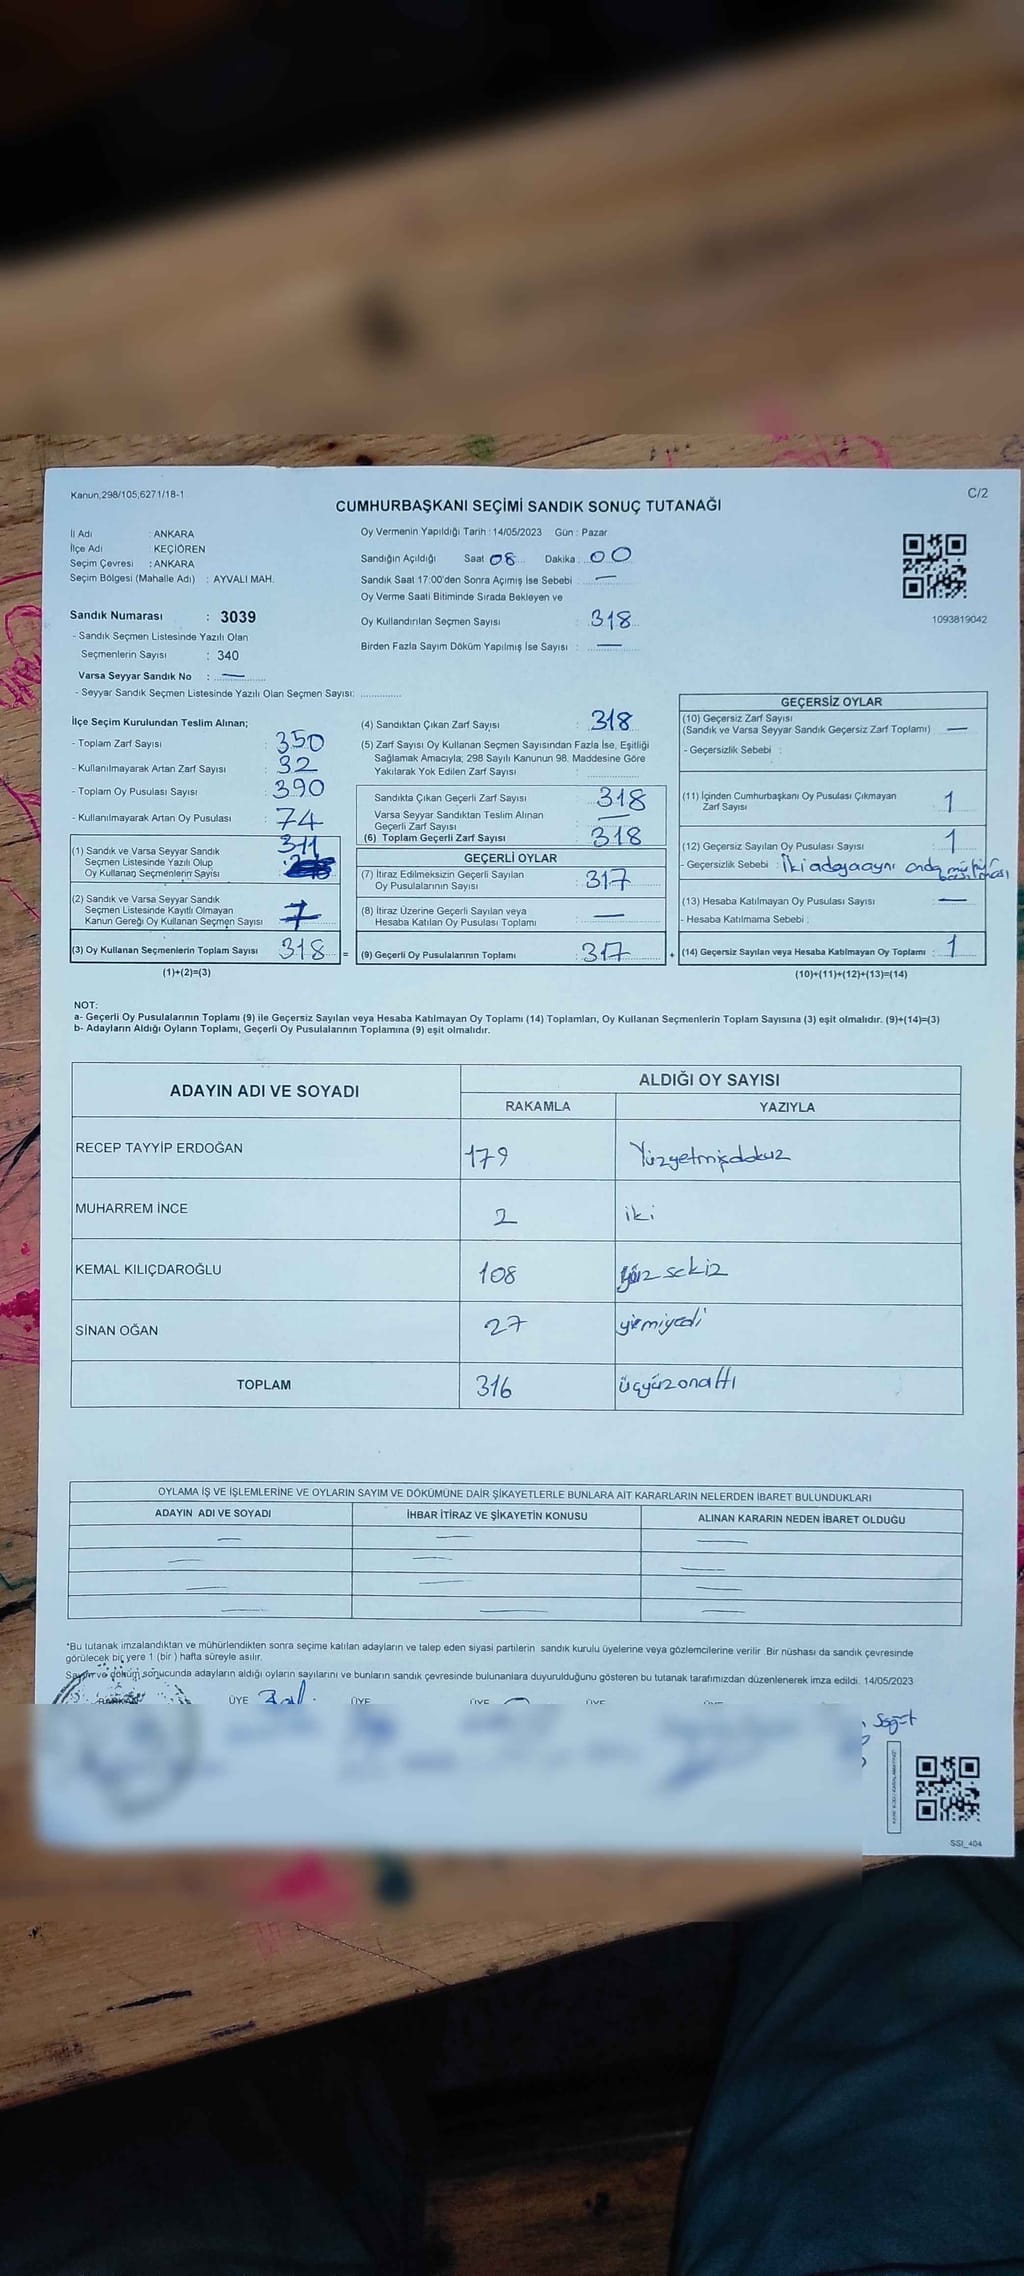 Kanun,298/105,6271/18-1
C/2
CUMHURBAŞKANI SEÇİMİ SANDIK SONUÇ TUTANAĞI
İl Adı : ANKARA
İlçe Adı : KEÇİÖREN
Seçim Çevresi : ANKARA
Seçim Bölgesi (Mahalle Adı) : AYVALI MAH.
Oy Vermenin Yapıldığı Tarih : 14/05/2023 Gün : Pazar
Sandığın Açıldığı Saat 08 Dakika : 00
Sandık Saat 17:00'den Sonra Açımış İse Sebebi : —
Oy Verme Saati Bitiminde Sırada Bekleyen ve
Oy Kullandırılan Seçmen Sayısı : 318
Birden Fazla Sayım Döküm Yapılmış İse Sayısı : —
1093819042
Sandık Numarası : 3039
- Sandık Seçmen Listesinde Yazılı Olan
Seçmenlerin Sayısı : 340
Varsa Seyyar Sandık No : —
- Seyyar Sandık Seçmen Listesinde Yazılı Olan Seçmen Sayısı: ............
İlçe Seçim Kurulundan Teslim Alınan;
- Toplam Zarf Sayısı : 350
- Kullanılmayarak Artan Zarf Sayısı : 32
- Toplam Oy Pusulası Sayısı : 390
- Kullanılmayarak Artan Oy Pusulası : 74
(1) Sandık ve Varsa Seyyar Sandık
Seçmen Listesinde Yazılı Olup
Oy Kullanan Seçmenlerin Sayısı : 311
(2) Sandık ve Varsa Seyyar Sandık
Seçmen Listesinde Kayıtlı Olmayan
Kanun Gereği Oy Kullanan Seçmen Sayısı : 7
(3) Oy Kullanan Seçmenlerin Toplam Sayısı : 318 =
(1)+(2)=(3)
(4) Sandıktan Çıkan Zarf Sayısı : 318
(5) Zarf Sayısı Oy Kullanan Seçmen Sayısından Fazla İse, Eşitliği
Sağlamak Amacıyla; 298 Sayılı Kanunun 98. Maddesine Göre
Yakılarak Yok Edilen Zarf Sayısı : ............
Sandıkta Çıkan Geçerli Zarf Sayısı : 318
Varsa Seyyar Sandıktan Teslim Alınan
Geçerli Zarf Sayısı : —
(6) Toplam Geçerli Zarf Sayısı : 318
GEÇERLİ OYLAR
(7) İtiraz Edilmeksizin Geçerli Sayılan
Oy Pusulalarının Sayısı : 317
(8) İtiraz Üzerine Geçerli Sayılan veya
Hesaba Katılan Oy Pusulası Toplamı : —
(9) Geçerli Oy Pusulalarının Toplamı : 317 +
GEÇERSİZ OYLAR
(10) Geçersiz Zarf Sayısı
(Sandık ve Varsa Seyyar Sandık Geçersiz Zarf Toplamı) : —
- Geçersizlik Sebebi :
(11) İçinden Cumhurbaşkanı Oy Pusulası Çıkmayan
Zarf Sayısı : 1
(12) Geçersiz Sayılan Oy Pusulası Sayısı : 1
- Geçersizlik Sebebi : İki adaya aynı anda mühür basılması
(13) Hesaba Katılmayan Oy Pusulası Sayısı : —
- Hesaba Katılmama Sebebi :
(14) Geçersiz Sayılan veya Hesaba Katılmayan Oy Toplamı : 1
(10)+(11)+(12)+(13)=(14)
NOT:
a- Geçerli Oy Pusulalarının Toplamı (9) ile Geçersiz Sayılan veya Hesaba Katılmayan Oy Toplamı (14) Toplamları, Oy Kullanan Seçmenlerin Toplam Sayısına (3) eşit olmalıdır. (9)+(14)=(3)
b- Adayların Aldığı Oyların Toplamı, Geçerli Oy Pusulalarının Toplamına (9) eşit olmalıdır.
ADAYIN ADI VE SOYADI
ALDIĞI OY SAYISI
RAKAMLA YAZIYLA
RECEP TAYYİP ERDOĞAN 179 Yüzyetmişdokuz
MUHARREM İNCE 2 iki
KEMAL KILIÇDAROĞLU 108 yüz sekiz
SİNAN OĞAN 27 yirmiyedi
TOPLAM 316 üçyüzonaltı
OYLAMA İŞ VE İŞLEMLERİNE VE OYLARIN SAYIM VE DÖKÜMÜNE DAİR ŞİKAYETLERLE BUNLARA AİT KARARLARIN NELERDEN İBARET BULUNDUKLARI
ADAYIN ADI VE SOYADI İHBAR İTİRAZ VE ŞİKAYETİN KONUSU ALINAN KARARIN NEDEN İBARET OLDUĞU
— — —
— — —
— — —
— — —
*Bu tutanak imzalandıktan ve mühürlendikten sonra seçime katılan adayların ve talep eden siyasi partilerin sandık kurulu üyelerine veya gözlemcilerine verilir. Bir nüshası da sandık çevresinde
görülecek bir yere 1 (bir ) hafta süreyle asılır.
Sayım ve döküm sonucunda adayların aldığı oyların sayılarını ve bunların sandık çevresinde bulunanlara duyurulduğunu gösteren bu tutanak tarafımızdan düzenlenerek imza edildi. 14/05/2023
BAŞKAN ÜYE ÜYE ÜYE ÜYE ÜYE
SSI_404